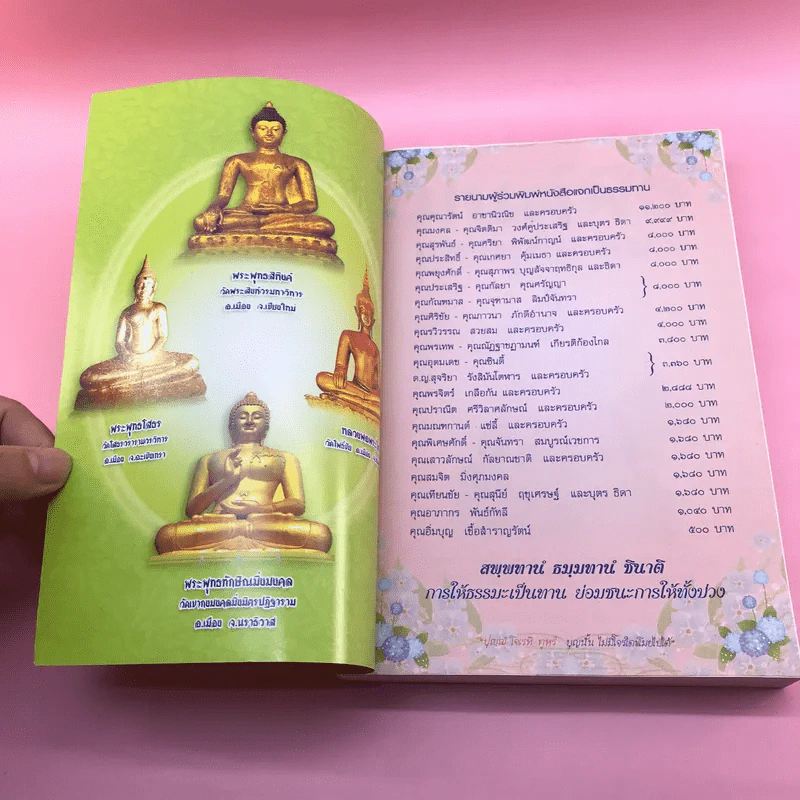 พระพุทธสิหิงค์
วัดพระสิงห์วรมหาวิหาร
อ.เมือง จ.เชียงใหม่
พระพุทธโสธร
วัดโสธรวรารามวรวิหาร
อ.เมือง จ.ฉะเชิงเทรา
หลวงพ่อพระ
วัดโพธิ์ชัย อ.เมือง
พระพุทธทักษิณมิ่งมงคล
วัดเขากงมงคลมิ่งมิตรปฏิฐาราม
อ.เมือง จ.นราธิวาส
รายนามผู้ร่วมพิมพ์หนังสือแจกเป็นธรรมทาน
คุณคุณารัตน์ อาชานิวณิช และครอบครัว ๑๑,๒๐๐ บาท
คุณมงคล - คุณจิตติมา วงศ์คู่ประเสริฐ และบุตร ธิดา ๙,๙๙๙ บาท
คุณสุรพันธ์ - คุณศริยา พิพัฒน์กาญน์ และครอบครัว ๘,๐๐๐ บาท
คุณประสิทธิ์ - คุณเกศยา คุ้มเมธา และครอบครัว ๘,๐๐๐ บาท
คุณพยุงศักดิ์ - คุณสุภาพร บุญสัจจาฤทธิกุล และธิดา ๘,๐๐๐ บาท
คุณประเสริฐ - คุณกัลยา คุณศรัญญา
คุณกัณฑมาส - คุณจุฑามาส ลิมป์จันทรา } ๘,๐๐๐ บาท
คุณศิริชัย - คุณภาวนา ภักดีอำนาจ และครอบครัว ๔,๒๐๐ บาท
คุณรวิวรรณ สวยสม และครอบครัว ๔,๐๐๐ บาท
คุณพรเทพ - คุณณัฏฐาชฏามานท์ เกียรติก้องไกล ๓,๘๐๐ บาท
คุณอุดมเดช - คุณซินดี้
ด.ญ.สุจริยา รังสิมันโตหาร และครอบครัว } ๓,๓๖๐ บาท
คุณพรจิตร์ เกลือกัน และครอบครัว ๒,๔๘๘ บาท
คุณปราณีต ศรีวิลาศลักษณ์ และครอบครัว ๒,๐๐๐ บาท
คุณมณฑกานต์ แซ่ลี้ และครอบครัว ๑,๖๘๐ บาท
คุณพิเศษศักดิ์ - คุณจันทรา สมบูรณ์เวชการ ๑,๖๘๐ บาท
คุณเสาวลักษณ์ กัลยาณชาติ และครอบครัว ๑,๖๘๐ บาท
คุณสมจิต มิ่งศุภมงคล ๑,๖๘๐ บาท
คุณเทียนชัย - คุณสุนีย์ ฤชุเศรษฐ์ และบุตร ธิดา ๑,๖๘๐ บาท
คุณอาภากร พันธ์กัทลี ๑,๐๔๐ บาท
คุณอิ่มบุญ เชื้อสำราญรัตน์ ๕๐๐ บาท
สพฺพทานํ ธมฺมทานํ ชินาติ
การให้ธรรมะเป็นทาน ย่อมชนะการให้ทั้งปวง
"ปุญฺญํ โจเรหิ ทูหรํ บุญนั้น ไม่มีโจรใดพิมปไปได้"